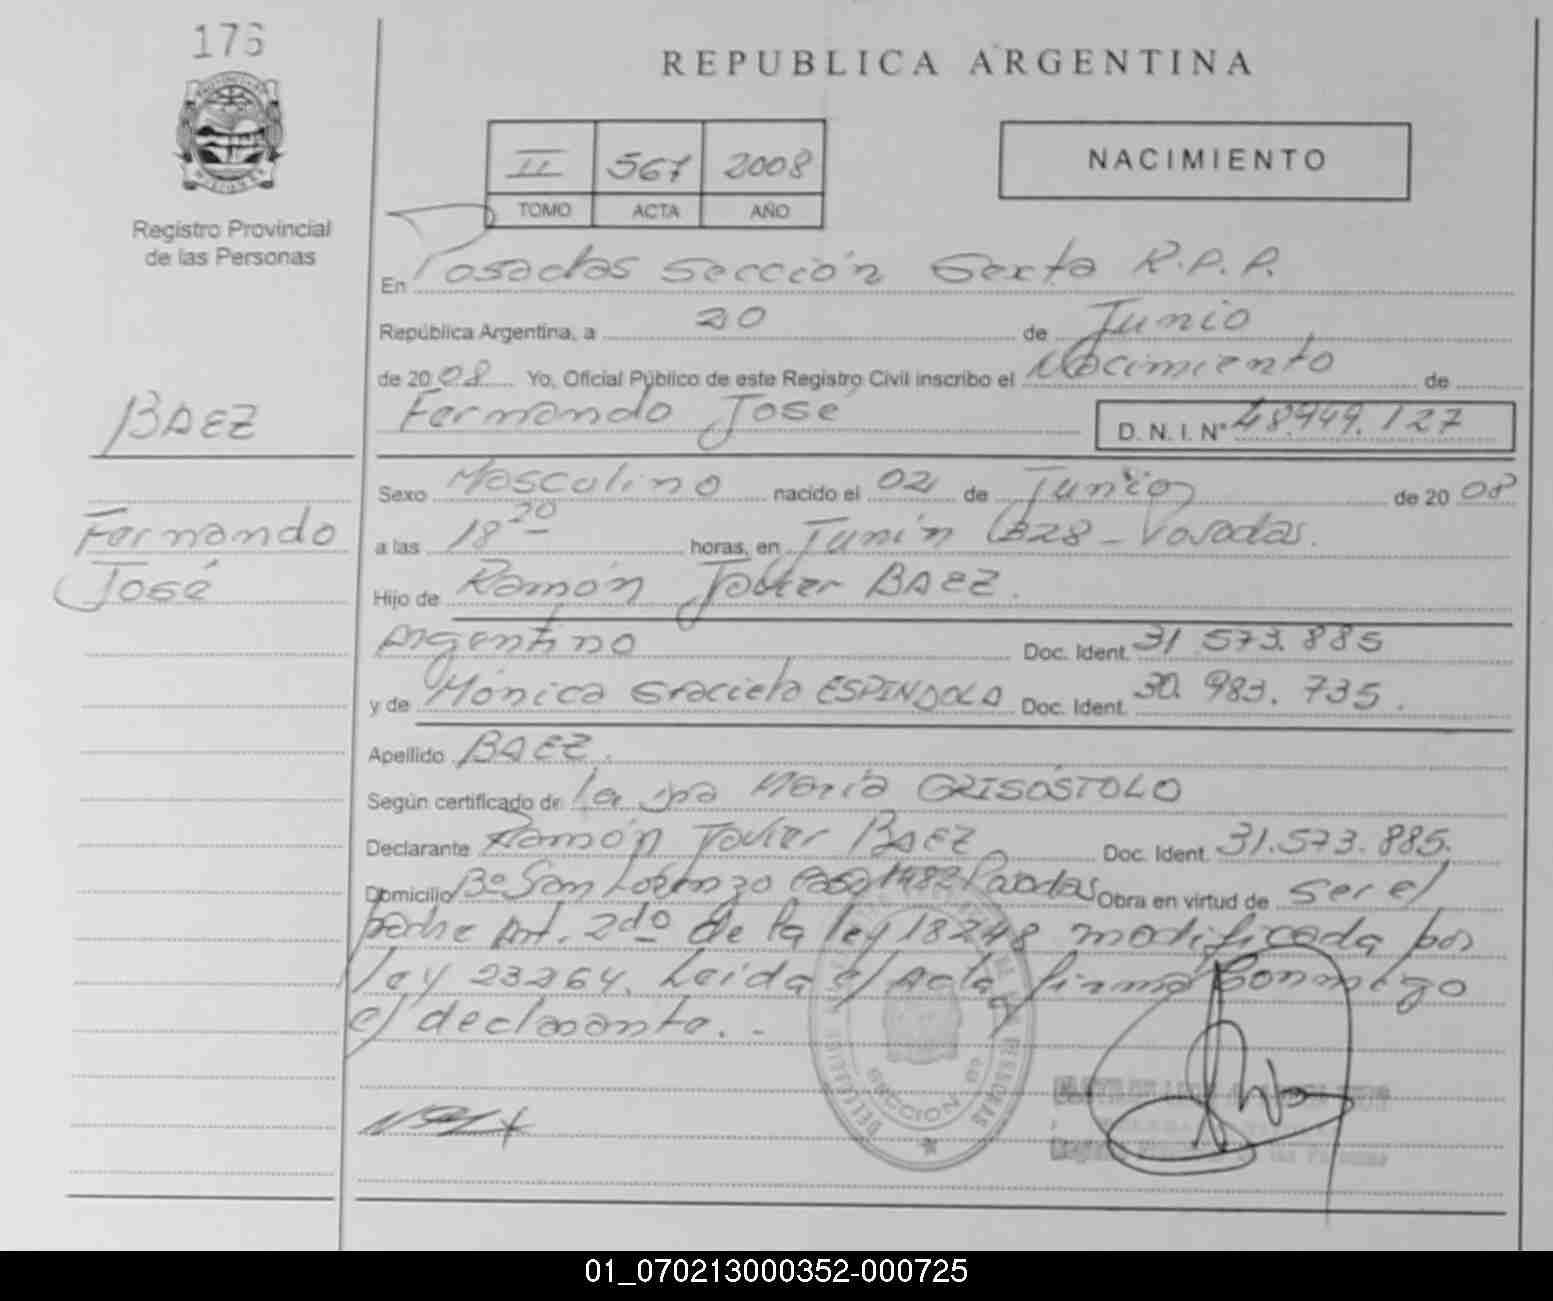 176
REPUBLICA ARGENTINA
II 567 2008
TOMO ACTA AÑO
NACIMIENTO
Registro Provincial
de las Personas
En Posadas Sección Sexta R.P.P.
República Argentina, a 20 de Junio
de 2008 Yo, Oficial Público de este Registro Civil inscribo el Nacimiento de
BAEZ
Fernando José D. N. I. N° 48.949.127
Sexo Masculino nacido el 02 de Junio de 2008
Fernando
José
a las 18 20 horas, en Junín - Posadas.
Hijo de Ramón Javier BAEZ.
Argentino Doc. Ident. 31.573.885
y de Mónica Graciela ESPINDOLA Doc. Ident. 30.983.735.
Apellido BAEZ.
Según certificado de la María GRISÓSTOLO
Declarante Ramón Javier BAEZ Doc. Ident. 31.573.885.
Domicilio B° San Lorenzo casa 1482 Posadas Obra en virtud de ser el
padre Art. 2do de la ley 18248 modificada por
ley 23264. Leida el Acta, firma Conmigo
el declarante. -
SECCION 6ª
01_070213000352-000725